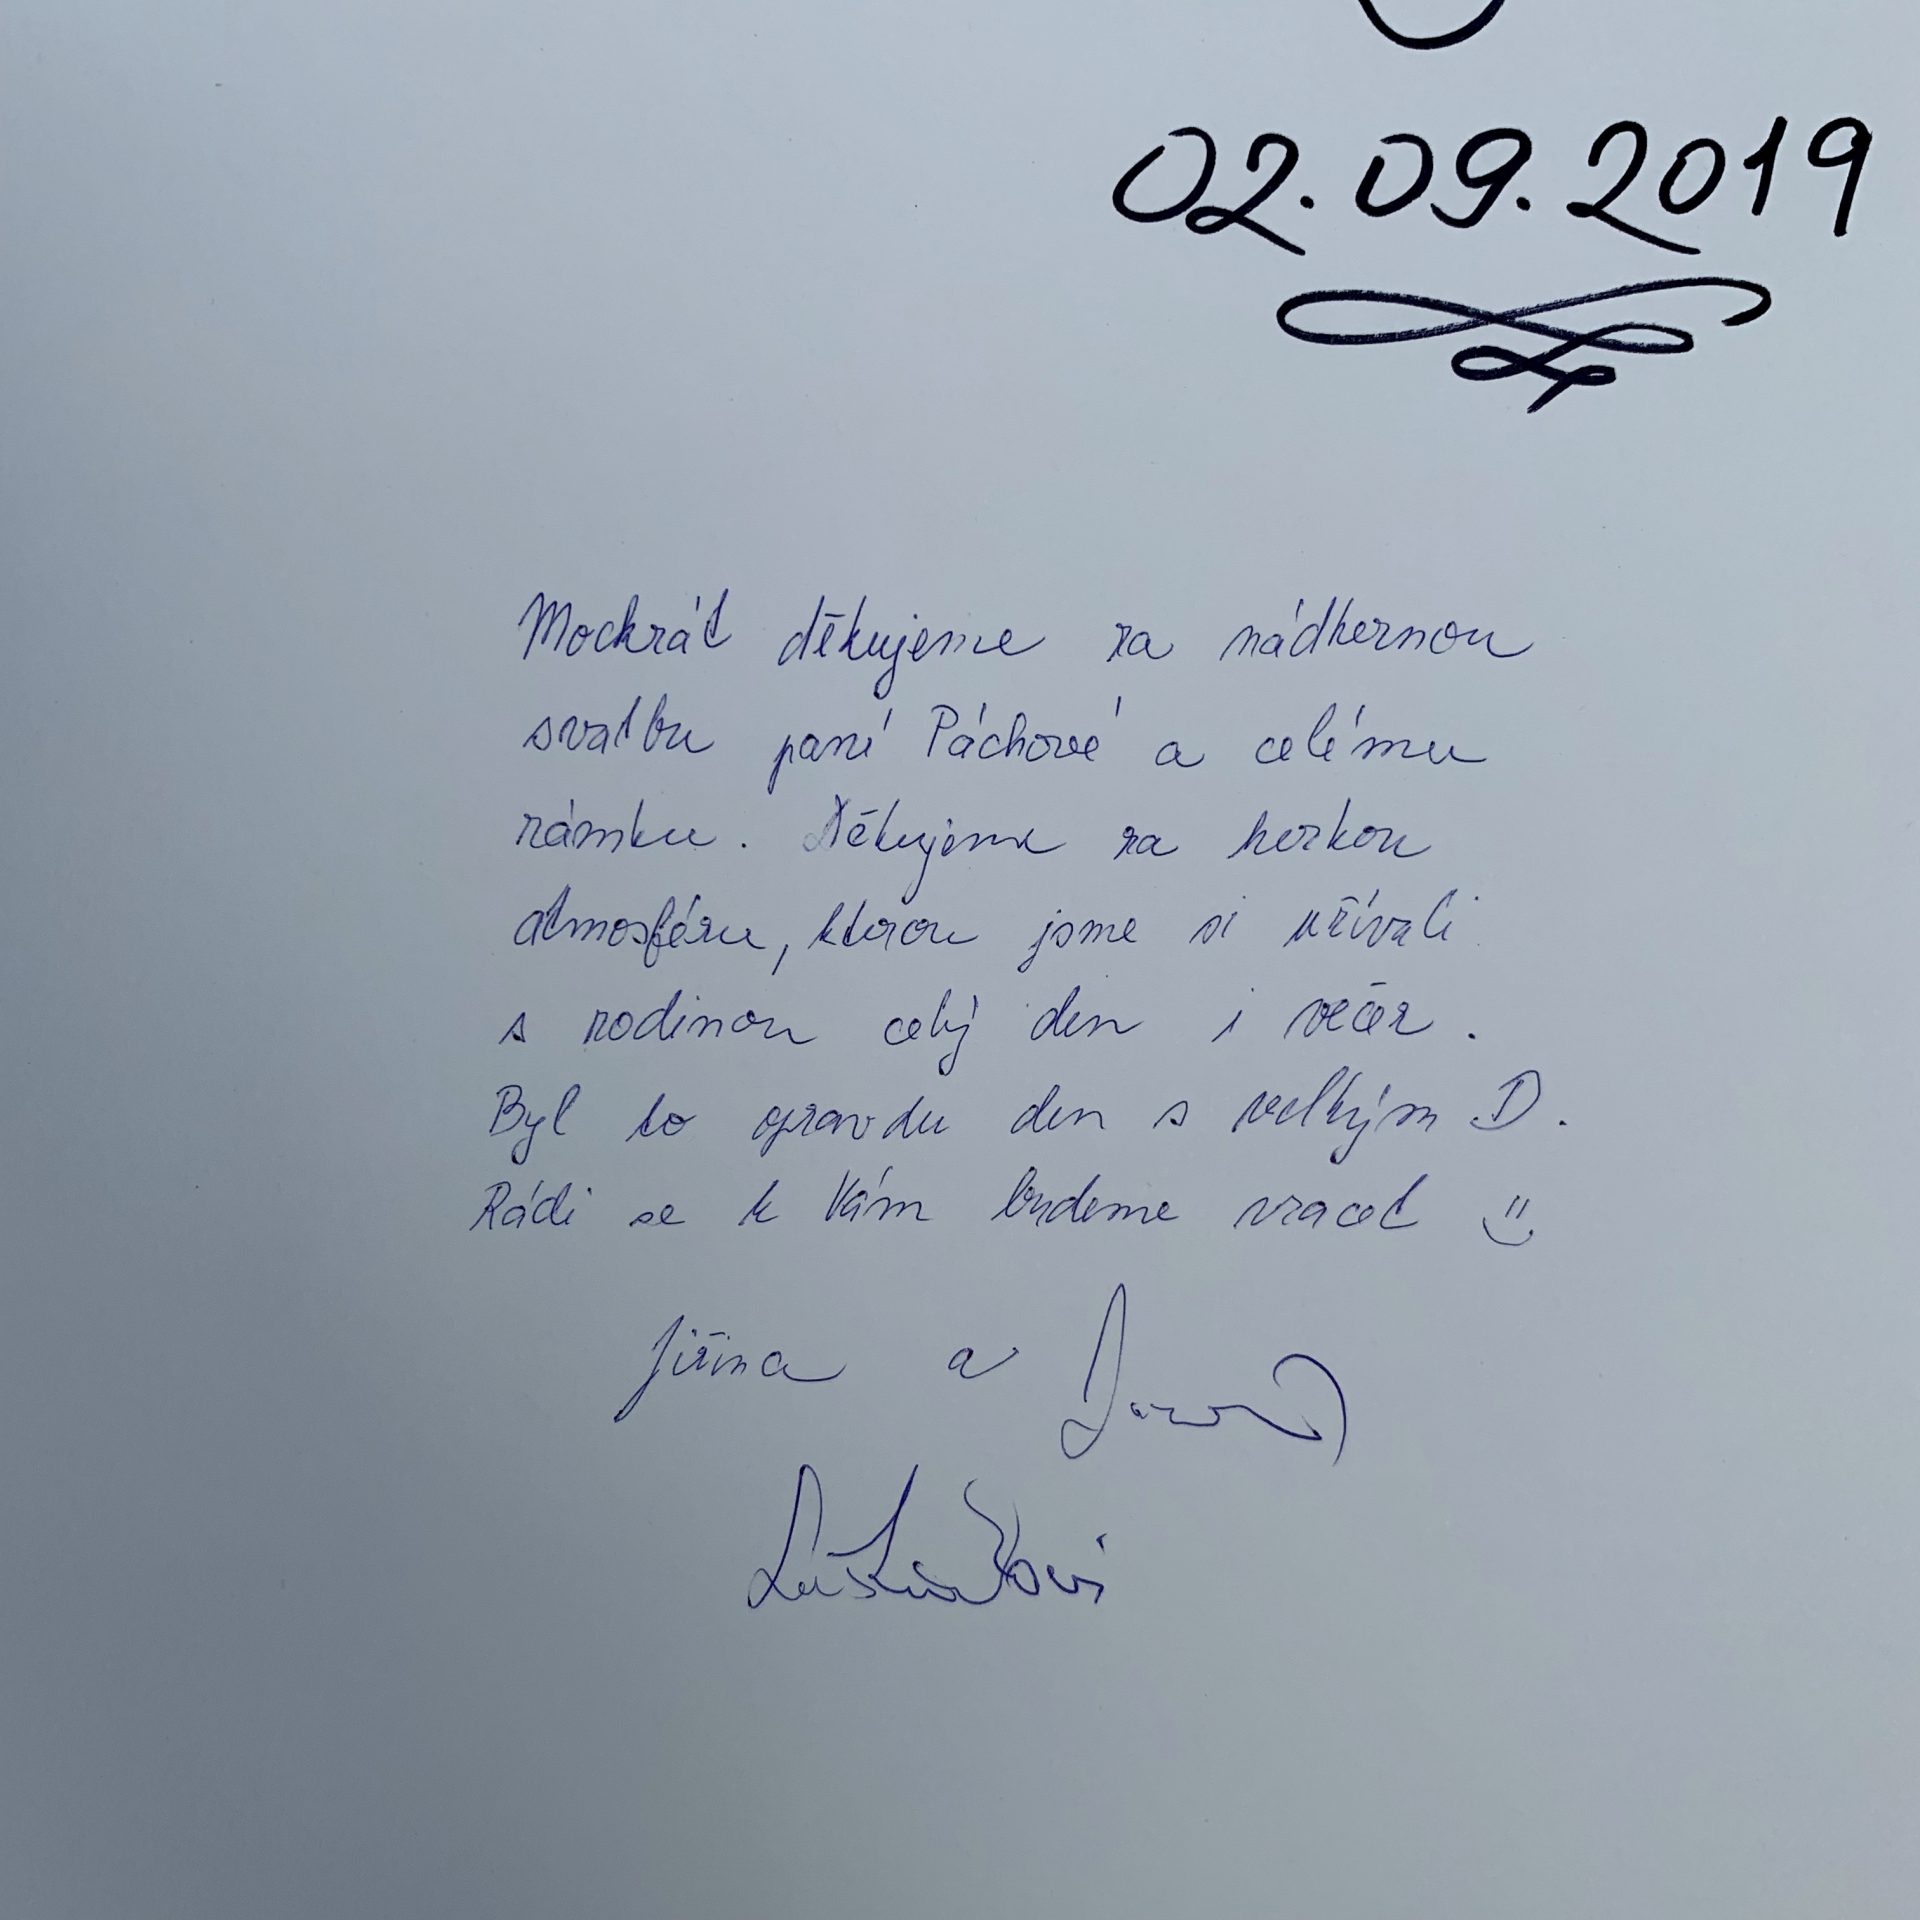 02.09.2019
Mockrát děkujeme za nádhernou
svatbu paní Páchové a celému
zámku. Děkujeme za hezkou
atmosféru, kterou jsme si užívali
s rodinou celý den i večer.
Byl to opravdu den s velkým D.
Rádi se k Vám budeme vracet
Jiřina a